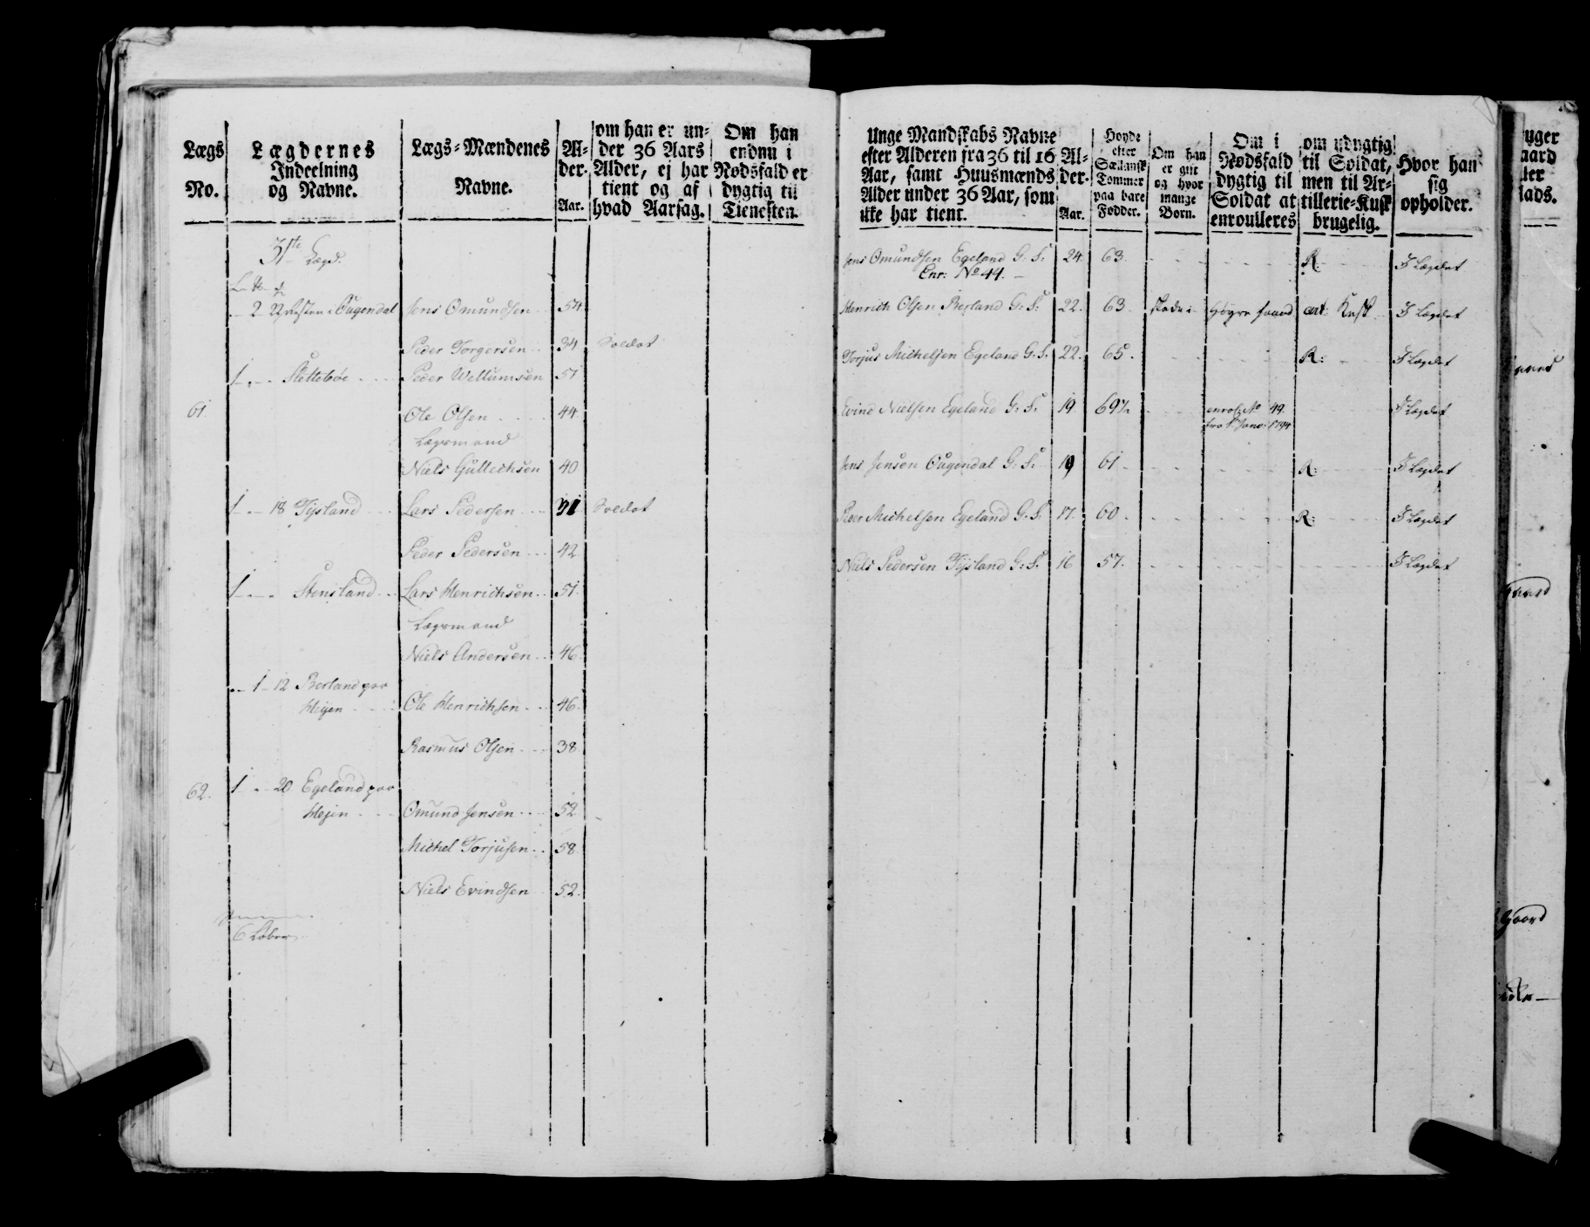 Lægs No.
Lægdernes Indeelning og Navne.
Lægs-Mændenes Navne.
Al-der. Aar.
om han er un-der 36 Aars Alder, ej har tient og af hvad Aarsag.
Om han endnu i Nødsfald er dygtig til Tienesten.
31te Lægd.
2 22 Øugendal Jens Omundsen 54
Peder Torgersen 34 Soldat
1 Slettebøe Peder Wellumsen 51
61 Ole Olsen 44
Lægsmand
Niels Gullechsen 40
1 18 Tysland Lars Pedersen 31 Soldat
Peder Pedersen 42
1 Stensland Lars Henrichsen 51
Lægsmand
Niels Andersen 46
1 12 Berland paa
Heyen Ole Henrichsen 46
Rasmus Olsen 38
62. 1 20 Egeland paa
Hejen Omund Jensen 52
Michel Torjusen 58
Niels Evindsen 52
6 Løber
Unge Mandskabs Navne efter Alderen fra 36 til 16 Aar, samt Huusmænds Alder under 36 Aar, som ikke har tient.
Al-der. Aar.
Høyde efter Sællansk Tommer paa bare Fødder.
Om han er gift og hvor mange Børn.
Om i Nødsfald dygtig til Soldat at enroulleres
om udygtig til Soldat, men til Ar-tillerie-Kusk brugelig.
Hvor han sig opholder.
Jens Omundsen Egeland G. S. 24 63 R: I Lægdet
Enr: No 44.
Henrich Olsen Berland G. S. 22 63 Skade i Høyre Haand ant: Kusk I Lægdet
Torjus Michelsen Egeland G. S. 22 65 R: I Lægdet
Evind Nielsen Egeland G. S. 19 69½ enrol: No 49. I Lægdet
fra 1 Janv: 1794
Jens Jensen Øugendal G. S. 19 61 R: I Lægdet
Peder Michelsen Egeland G. S. 17 60 R: I Lægdet
Niels Pedersen Tysland G. S. 16 57 I Lægdet